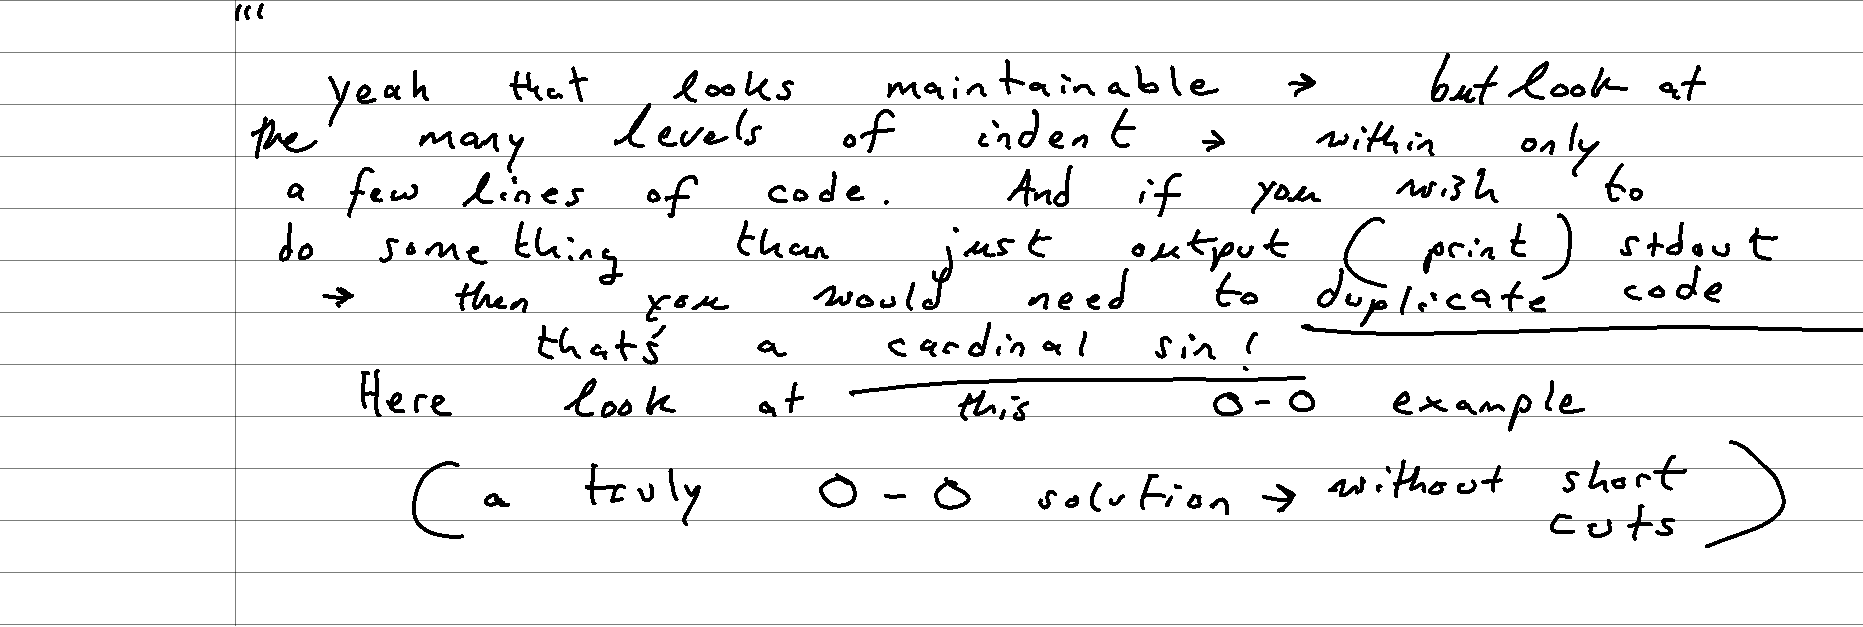 "'
yeah that looks maintainable → but look at
the many levels of indent → within only
a few lines of code. And if you wish to
do something than just output (print) stdout
→ then you would need to duplicate code
that's a cardinal sin!
Here look at this O-O example
(a truly O-O solution → without short
cuts)